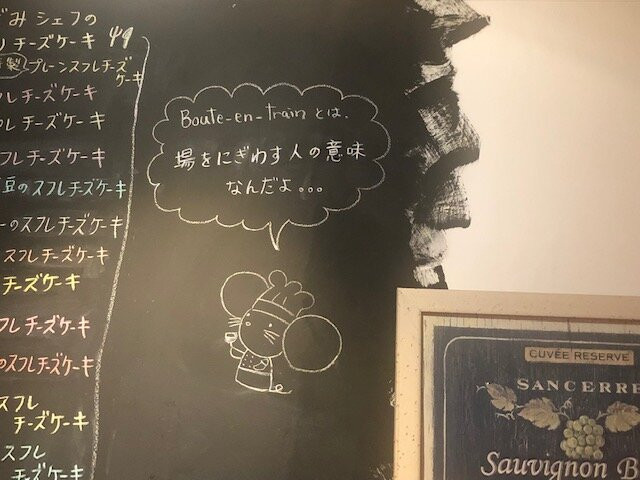 ぐみシェフの
りチーズケーキ 49
製 プレーンスフレチーズ
ケーキ
フレチーズケーキ
フレチーズケーキ
フレチーズケーキ
豆のスフレチーズケーキ
ーのスフレチーズケーキ
スフレチーズケーキ
チーズケーキ
フレチーズケーキ
のスフレチーズケーキ
スフレ
チーズケーキ
スフレ
チーズケーキ
Boute-en-trainとは、
場をにぎわす人の意味
なんだよ。。。
CUVÉE RESERVE
SANCERRE
Sauvignon B